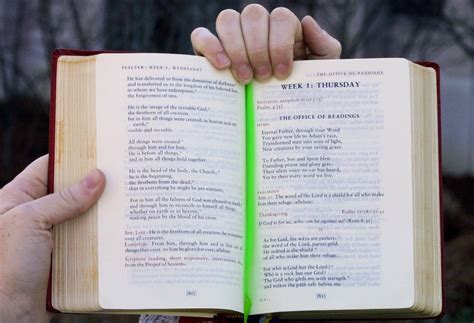 PSALTER: WEEK I, WEDNESDAY
He has delivered us from the dominion of darkness
and transferred us to the kingdom of his beloved
in whom we have redemption,
the forgiveness of sins.
He is the image of the invisible God,
the firstborn of all creation,
for in him all things were created, in heaven and
on earth,
visible and invisible.
All things were created
through him and for him.
He is before all things,
and in him all things hold together.
He is the head of the body, the Church,
he is the beginning,
the firstborn from the dead,
that in everything he might be pre-eminent.
For in him all the fulness of God was pleased to dwell,
and through him to reconcile to himself all things,
whether on earth or in heaven,
making peace by the blood of his cross.
over all creatures.
Eastertide: From him, through him and in him all
things that exist: to him be glory for ever, alleluia.
Scripture reading, short responsory, intercessions,
from the Proper of Seasons.
THE OFFICE OF READINGS
WEEK I: THURSDAY
Invitatory
Psalm
THE OFFICE OF READINGS
HYMN
Eternal Father, through your Word
You gave new life to Adam's race,
Transformed men into sons of light,
New creatures by your saving grace.
To Father, Son and Spirit blest
Be praise and glory
PSALMODY
Ant. The word of the Lord is a shield for all who make
him their refuge (alleluia).
Thanksgiving
If God is for us, who can be against us?
As for God, his ways are perfect;
the word of the Lord, purest gold.
He indeed is the shield
of all who make him their refuge.
For who is God but the Lord?
Who is a rock but our God?